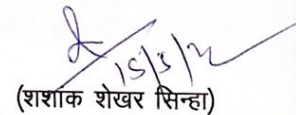 15/3/22
(शशांक शेखर सिन्हा)